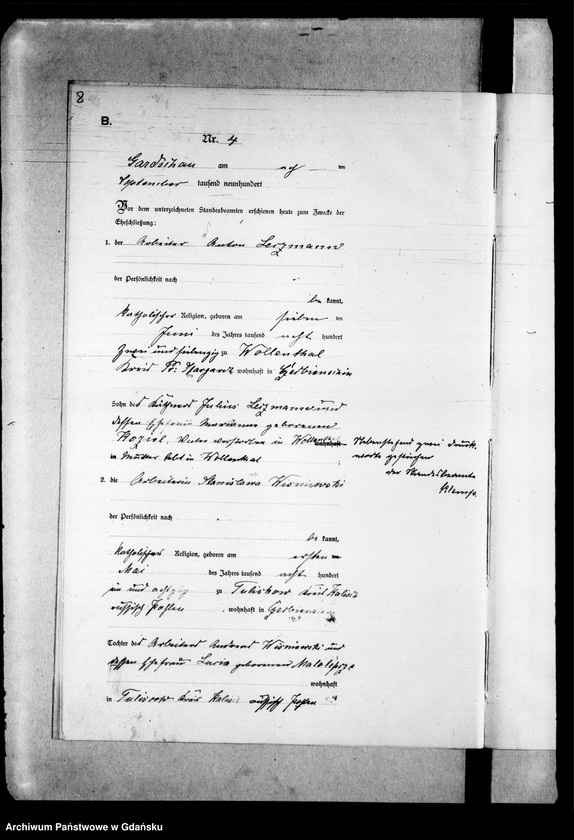 8
B.
Nr. 4
Gardschau am ten
September tausend neunhundert
Vor dem unterzeichneten Standesbeamten erschienen heute zum Zwecke der
Eheschließung:
1. der Arbeiter Anton Lezmann
der Persönlichkeit nach
be kannt,
katholischer Religion, geboren am sieben ten
Juni des Jahres tausend acht hundert
zwei und siebenzig zu Wollenthal
Kreis Pr: Stargardt wohnhaft in
Sohn des Käthners Julius Lezmann und
dessen Ehefrau Marianne geborenen
Koziel, Vater verstorben in wohnhaft
in Mutter lebt in Wollenthal
Nebenstehend zwei Druck-
worte gestrichen
der Standesbeamte
2. die Arbeiterin Stanislawa Wisniewski
der Persönlichkeit nach
be kannt,
katholischer Religion, geboren am ersten
Mai des Jahres tausend acht hundert
und achtzig zu Tuliskow Kreis Kalisz
russisch Pohlen wohnhaft in
Tochter des Arbeiters Andreas Wisniewski und
dessen Ehefrau geborenen
wohnhaft
in Tuliscow Kreis russisch Pohlen
Archiwum Państwowe w Gdańsku